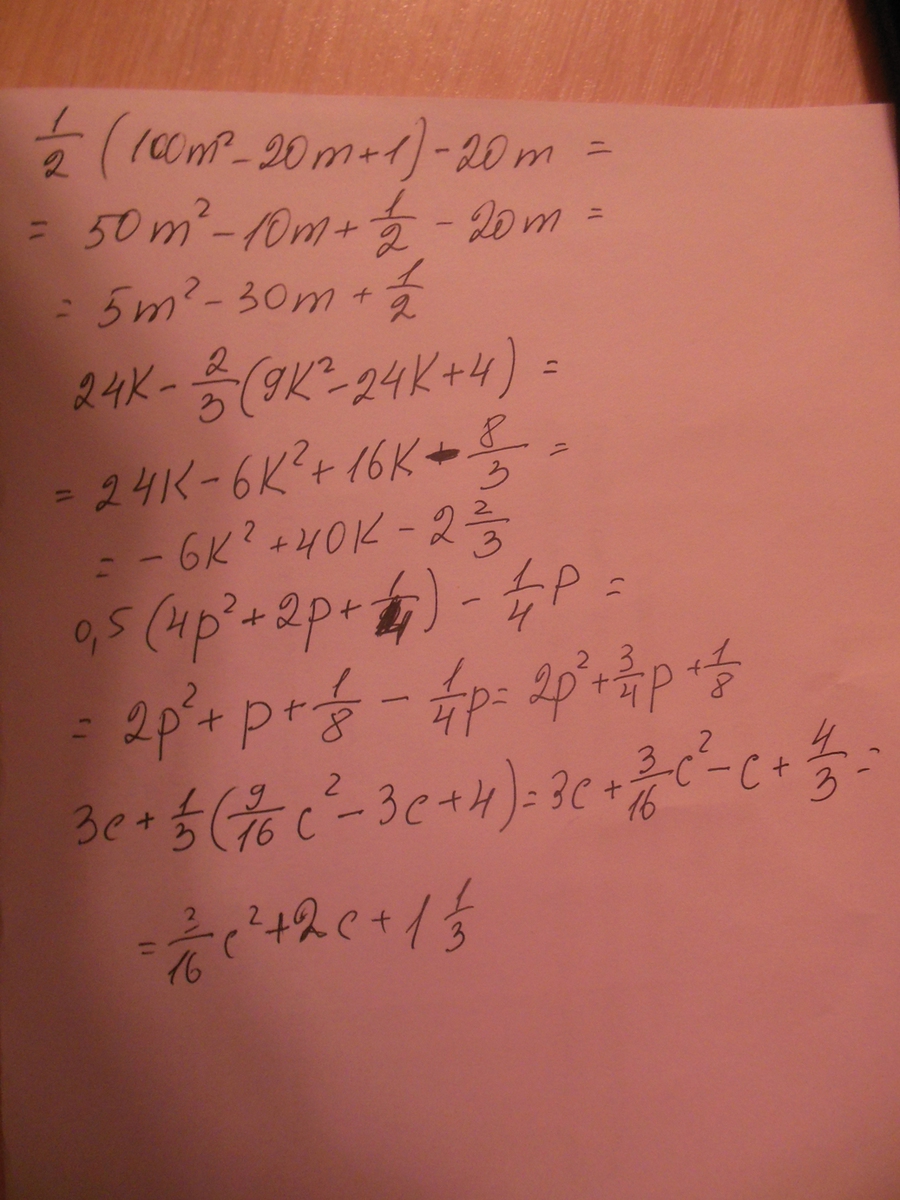 1/2 (100m² - 20m + 1) - 20m =
= 50m² - 10m + 1/2 - 20m =
= 5m² - 30m + 1/2
24K - 2/3 (9K² - 24K + 4) =
= 24K - 6K² + 16K - 8/3 =
= - 6K² + 40K - 2 2/3
0,5 (4p² + 2p + 1/4) - 1/4 p =
= 2p² + p + 1/8 - 1/4 p = 2p² + 3/4 p + 1/8
3c + 1/3 (9/16 c² - 3c + 4) = 3c + 3/16 c² - c + 4/3 =
= 3/16 c² + 2c + 1 1/3